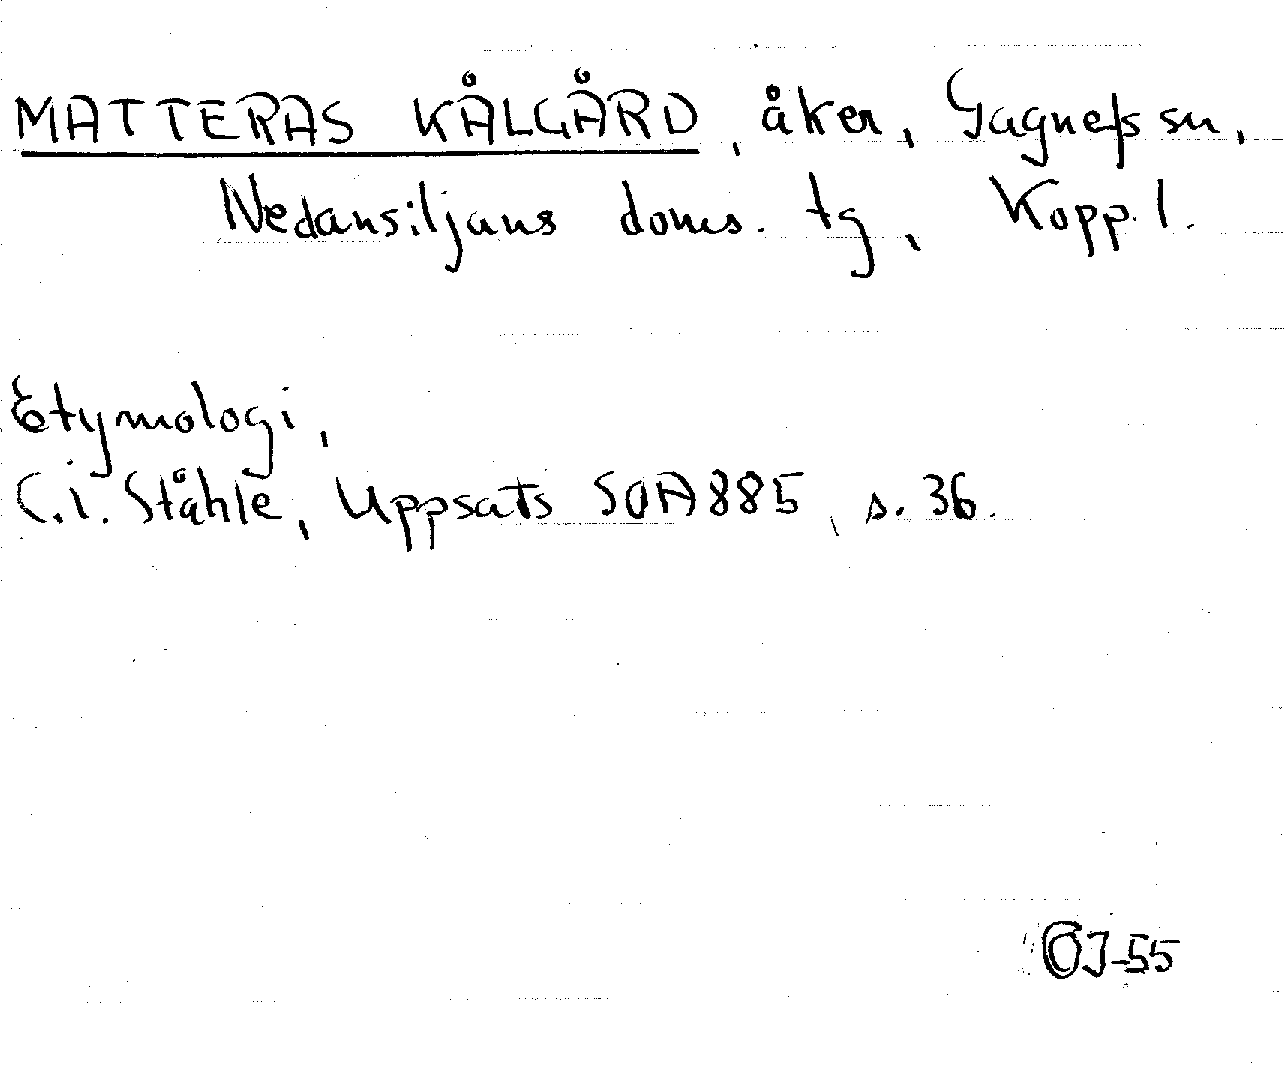 MATTERAS KÅLGÅRD, åker, Gagnefs sn,
Nedansiljans doms. tg, Kopp. l.
Etymologi,
C.I. Ståhle, Uppsats SOA 885, s. 36.
OJ-55